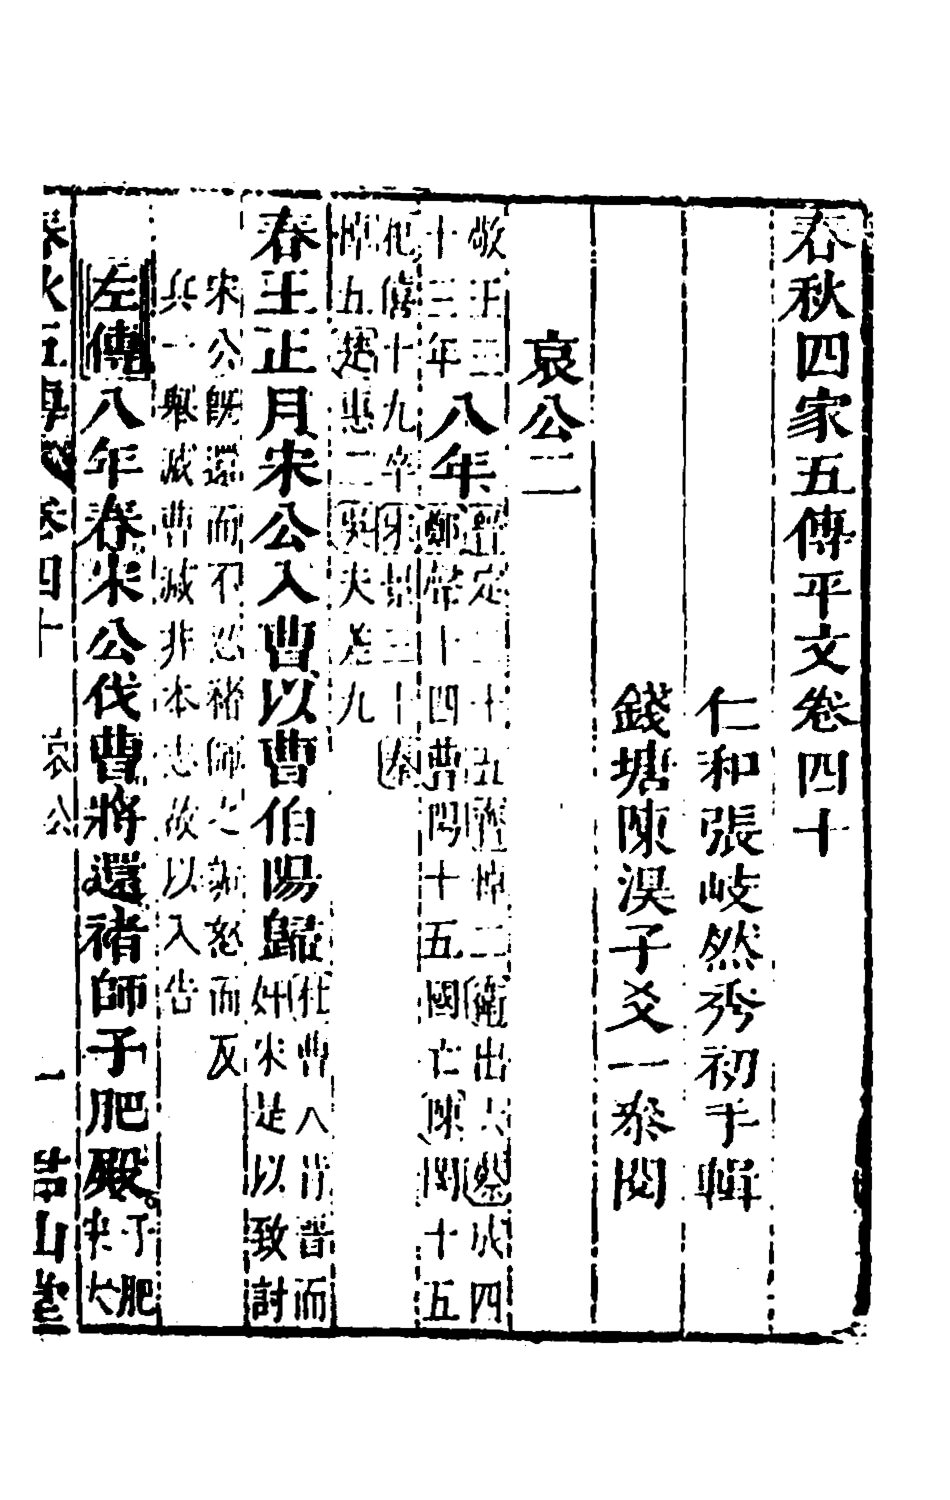 春秋四家五傳平文卷四十
仁和張岐然秀初手輯
錢塘陳淏子爻一叅閱
哀公二
敬王三
十三年
八年
晉定二十五齊悼二衛出六蔡成四
鄭聲十四曹陽十五國亡陳閔十五
杞僖十九卒宋景三十秦
悼五楚惠二吳夫差九
春王正月宋公入曹以曹伯陽歸
杜曹人背晉而
奸宋是以致討
宋公旣還而不忍褚師之訴怒而反
兵一舉滅曹滅非本志故以入告
左傳八年春宋公伐曹將還褚師子肥殿
子肥
宋大
春秋五傳 卷四十 哀公 一 山堂